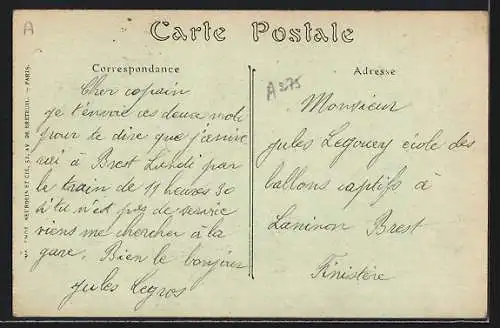 A
Carte Postale
Correspondance
Cher copain
je t'envoie ces deux mots
pour te dire que j'arrive
rai à Brest Lundi par
le train de 11 heures 30
si tu n'est pas de service
viens me chercher à la
gare. Bien le bonjour
Jules Legros
A375
Adresse
Monsieur
Jules Legouey école des
ballons captifs à
Laninon Brest
Finistère
ET CIE, AV. DE BRETEUIL. — PARIS.